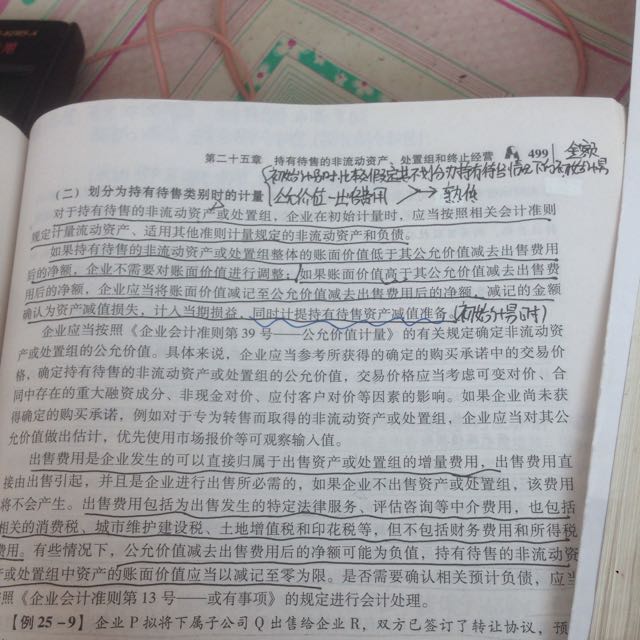 第二十五章　持有待售的非流动资产、处置组和终止经营　499
（二）划分为持有待售类别时的计量
公允价值－出售费用
对于持有待售的非流动资产或处置组，企业在初始计量时，应当按照相关会计准则
规定计量流动资产、适用其他准则计量规定的非流动资产和负债。
如果持有待售的非流动资产或处置组整体的账面价值低于其公允价值减去出售费用
后的净额，企业不需要对账面价值进行调整；如果账面价值高于其公允价值减去出售费
用后的净额，企业应当将账面价值减记至公允价值减去出售费用后的净额，减记的金额
确认为资产减值损失，计入当期损益，同时计提持有待售资产减值准备。
（初始计量时）
企业应当按照《企业会计准则第39号——公允价值计量》的有关规定确定非流动资
产或处置组的公允价值。具体来说，企业应当参考所获得的确定的购买承诺中的交易价
格，确定持有待售的非流动资产或处置组的公允价值，交易价格应当考虑可变对价、合
同中存在的重大融资成分、非现金对价、应付客户对价等因素的影响。如果企业尚未获
得确定的购买承诺，例如对于专为转售而取得的非流动资产或处置组，企业应当对其公
允价值做出估计，优先使用市场报价等可观察输入值。
出售费用是企业发生的可以直接归属于出售资产或处置组的增量费用，出售费用直
接由出售引起，并且是企业进行出售所必需的，如果企业不出售资产或处置组，该费用
将不会产生。出售费用包括为出售发生的特定法律服务、评估咨询等中介费用，也包括
相关的消费税、城市维护建设税、土地增值税和印花税等，但不包括财务费用和所得税
费用。有些情况下，公允价值减去出售费用后的净额可能为负值，持有待售的非流动资
产或处置组中资产的账面价值应当以减记至零为限。是否需要确认相关预计负债，应当
按照《企业会计准则第13号——或有事项》的规定进行会计处理。
【例25－9】企业P拟将下属子公司Q出售给企业R，双方已签订了转让协议，预